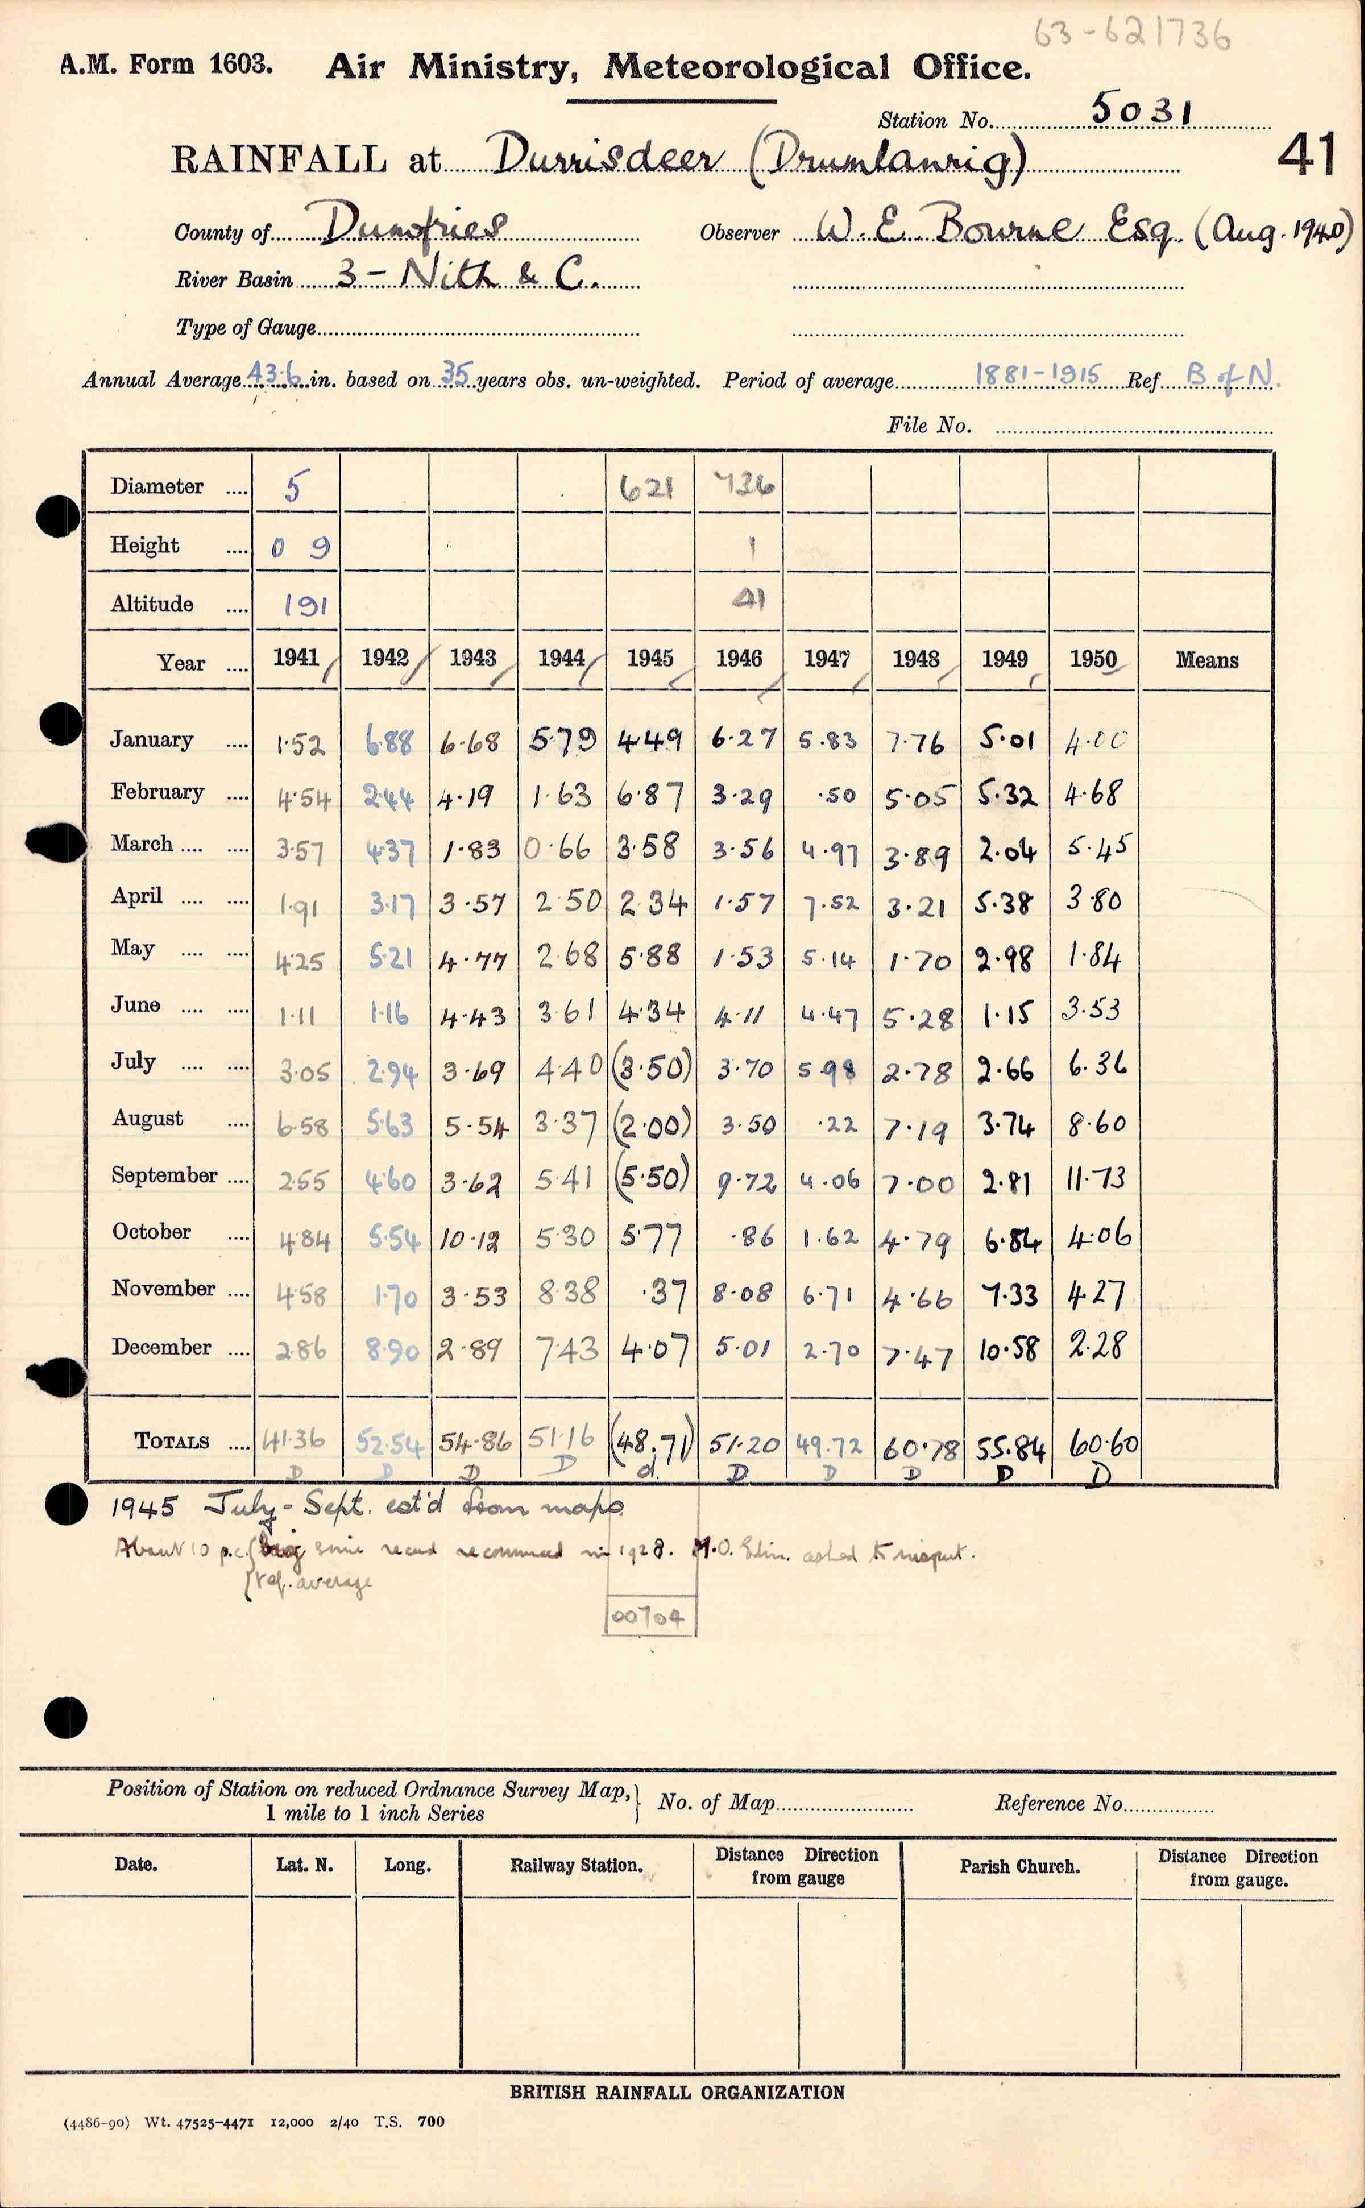 63-621736
A.M. Form 1603. Air Ministry, Meteorological Office.
Station No. 5031
41
RAINFALL at Durrisdeer (Drumlanrig)
County of Dumfries Observer W. E. Bourne Esq. (Aug. 1940)
River Basin 3 - Nith & C.
Type of Gauge
Annual Average 43.6 in. based on 35 years obs. un-weighted. Period of average 1881-1915 Ref B of N.
File No.
Diameter .... 5 621 736
Height .... 0 9 1
Altitude .... 191 41
Year .... 1941 1942 1943 1944 1945 1946 1947 1948 1949 1950 Means
January .... 1.52 6.88 6.68 5.79 4.49 6.27 5.83 7.76 5.01 4.00
February .... 4.54 2.44 4.19 1.63 6.87 3.29 .50 5.05 5.32 4.68
March .... .... 3.57 4.37 1.83 0.66 3.58 3.56 4.97 3.89 2.04 5.45
April .... .... 1.91 3.17 3.57 2.50 2.34 1.57 7.52 3.21 5.38 3.80
May .... .... 4.25 5.21 4.77 2.68 5.88 1.53 5.14 1.70 2.98 1.84
June .... .... 1.11 1.16 4.43 3.61 4.34 4.11 4.47 5.28 1.15 3.53
July .... .... 3.05 2.94 3.69 4.40 (3.50) 3.70 5.98 2.78 2.66 6.36
August .... 6.58 5.63 5.54 3.37 (2.00) 3.50 .22 7.19 3.74 8.60
September .... 2.55 4.60 3.62 5.41 (5.50) 9.72 4.06 7.00 2.81 11.73
October .... 4.84 5.54 10.12 5.30 5.77 .86 1.62 4.79 6.84 4.06
November .... 4.58 1.70 3.53 8.38 .37 8.08 6.71 4.66 7.33 4.27
December .... 2.86 8.90 2.89 7.43 4.07 5.01 2.70 7.47 10.58 2.28
TOTALS .... 41.36 52.54 54.86 51.16 (48.71) 51.20 49.72 60.78 55.84 60.60
D D D D d D D D D D
1945 July - Sept. est'd from maps.
About 10 p.c. since record recommenced in 1928. M.O. Edin. asked to inspect.
ref. average
00704
Position of Station on reduced Ordnance Survey Map, 1 mile to 1 inch Series } No. of Map Reference No.
Date. Lat. N. Long. Railway Station. Distance Direction from gauge Parish Church. Distance Direction from gauge.
BRITISH RAINFALL ORGANIZATION
(4486-90) Wt. 47525-4471 12,000 2/40 T.S. 700